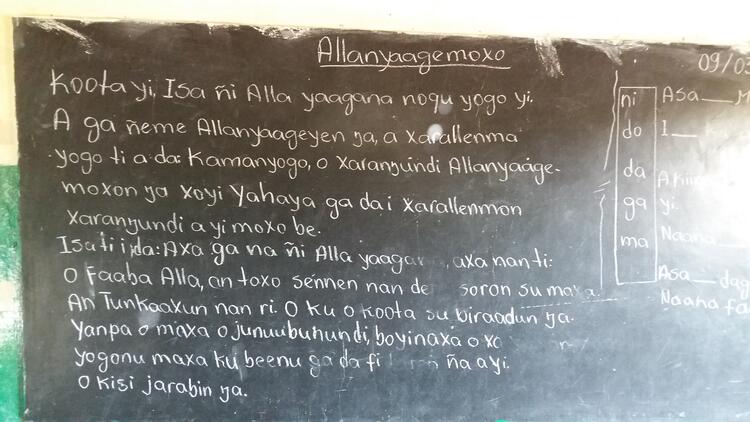 Allanyaagemoxo
Koota yi, Isa ñi Alla yaagana noqu yogo yi.
A ga ñeme Allanyaageyen ŋa, a xarallenma
yogo ti a da: Kamanyogo, o xaranŋundi Allanyaage-
moxon ŋa xoyi Yahaya ga da i xarallenmon
xaranŋundi a yi moxo be.
Isa ti i da: Axa ga na ñi Alla yaagan, axa nan ti:
O Faaba Alla, an toxo sennen nan de soron su maxa.
An Tunkaaxun nan ri. O ku o koota su biraadun ŋa.
Yanpa o maxa o junuubuhundi, boyinaxa o xo
yogonu maxa ku beenu ga da fi ña a yi.
O kisi jarabin ŋa.
09/03
ni
do
da
ga
ma
Asa ___ M
I ___
yi.
Naana ___
Asa ___ dag
Naana fa